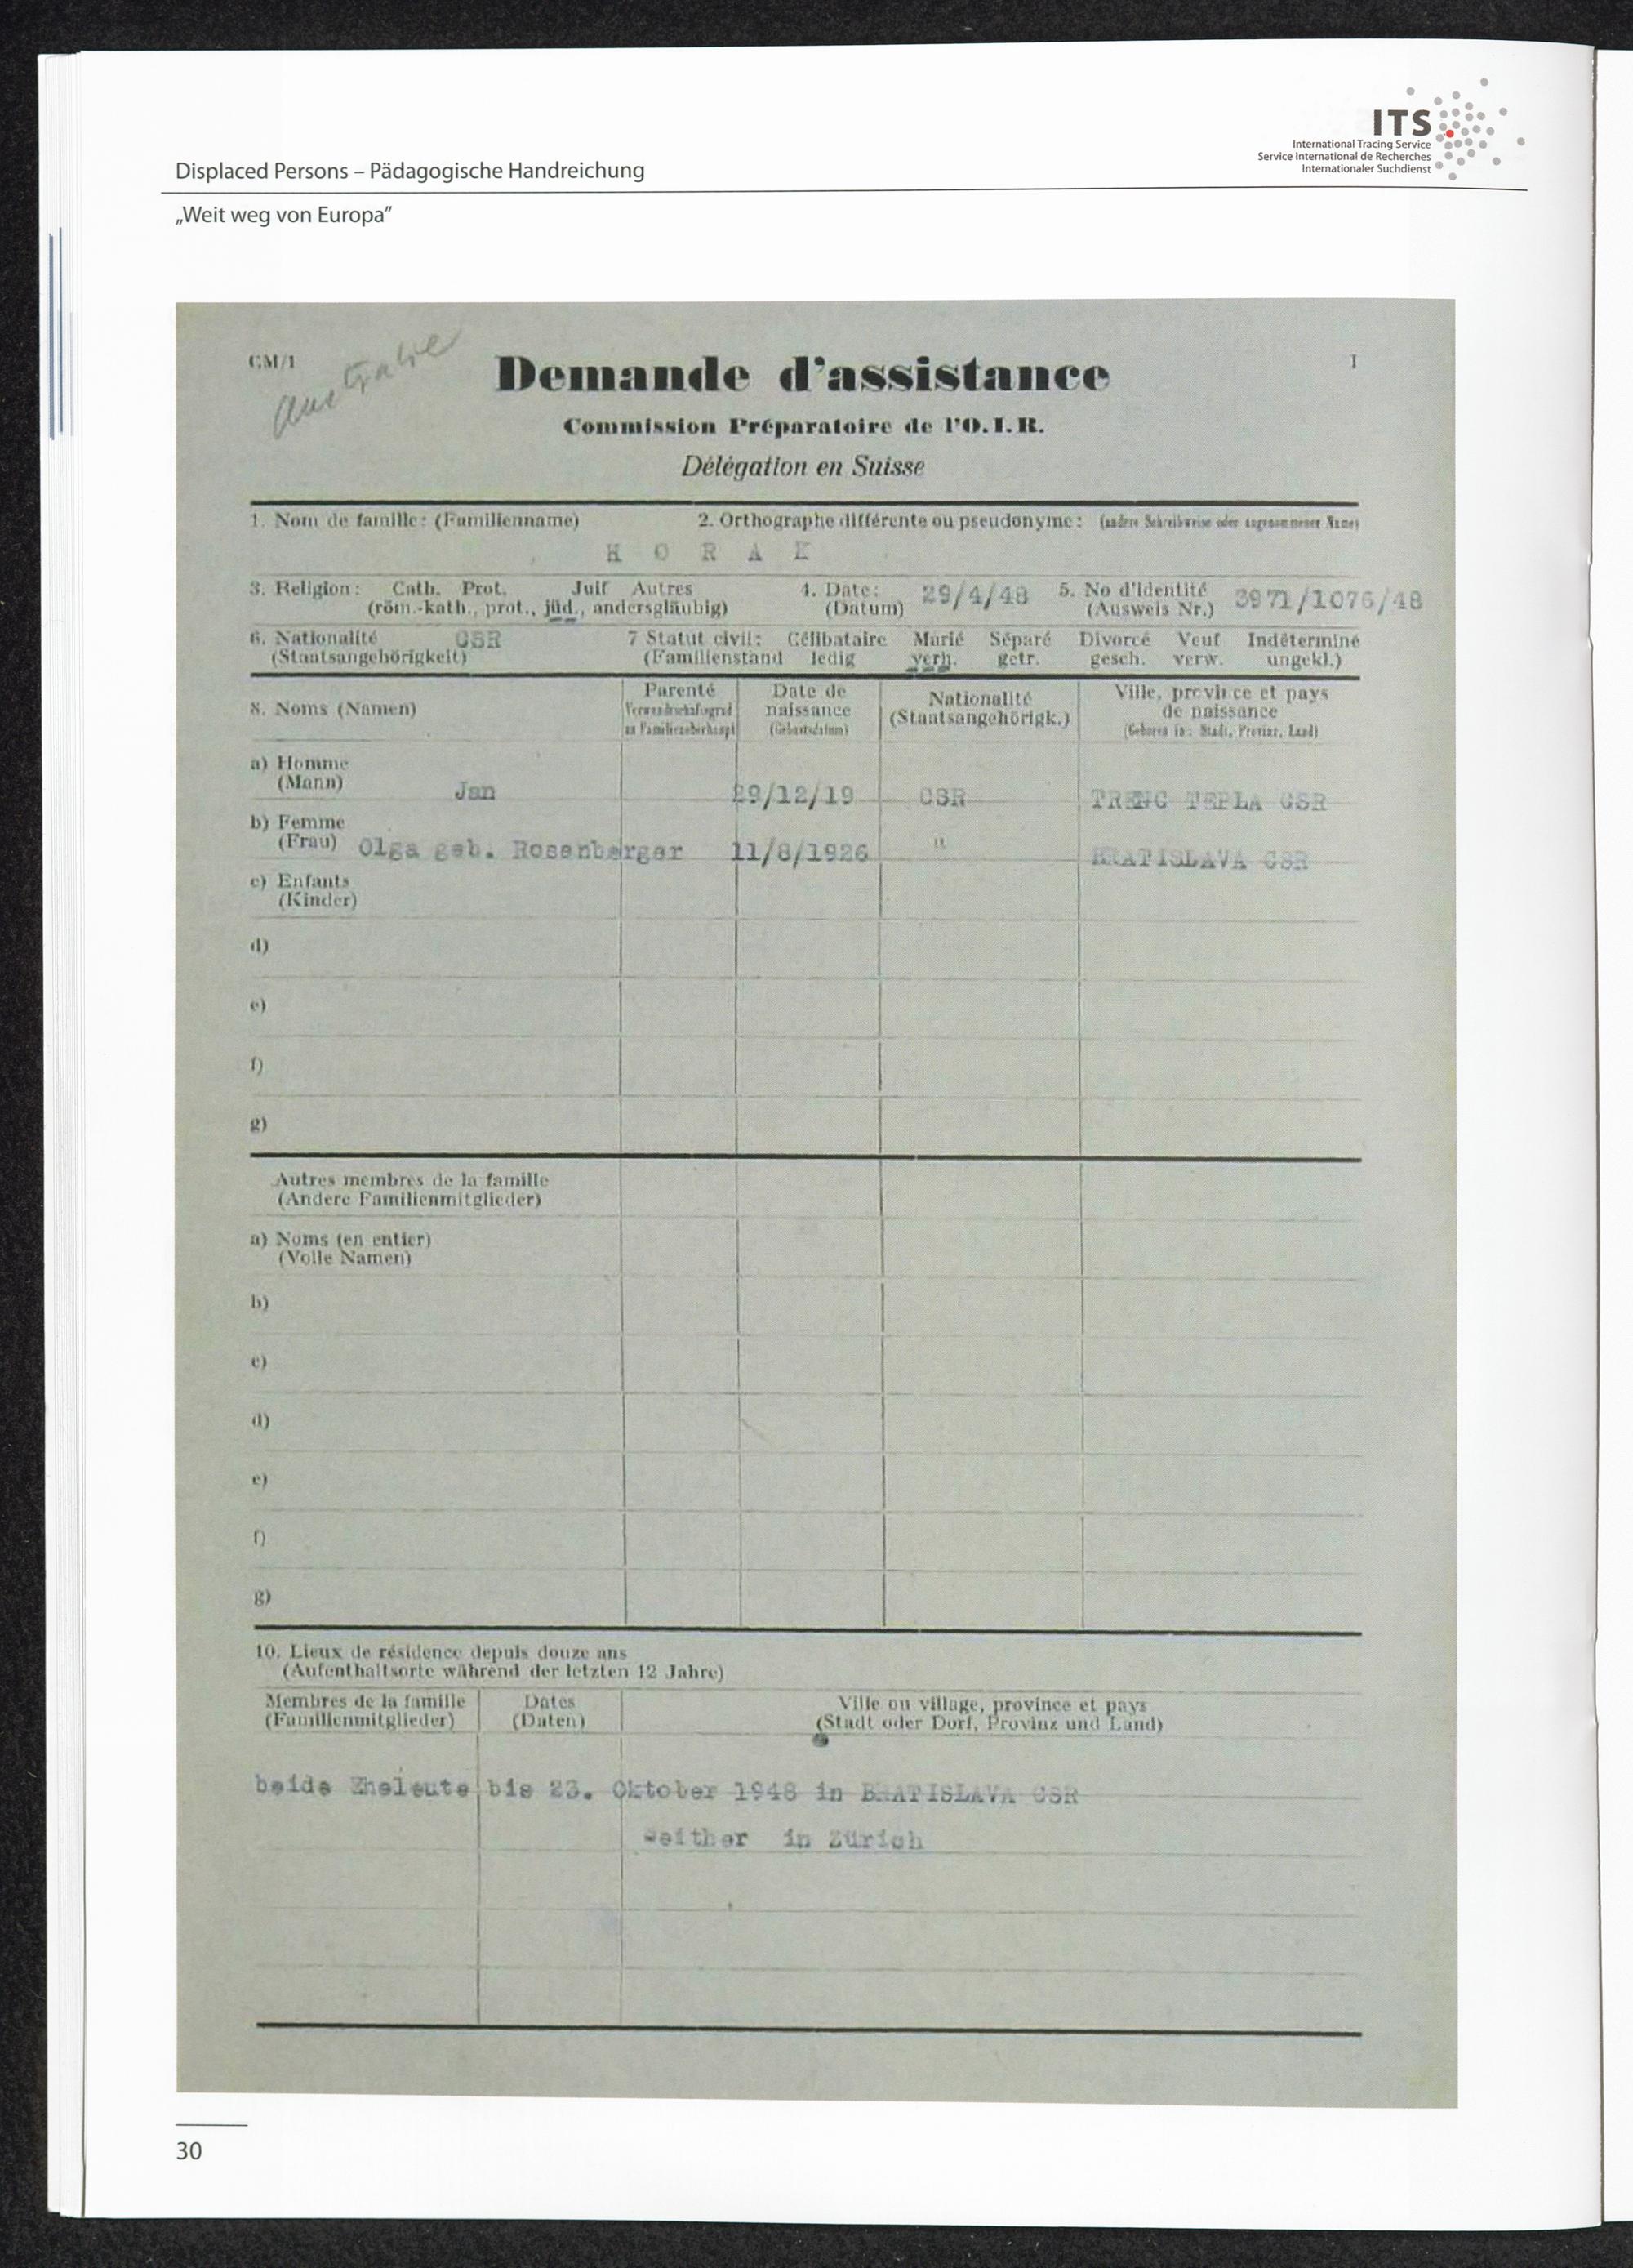 ITS
International Tracing Service
Service International de Recherches
Internationaler Suchdienst
Displaced Persons – Pädagogische Handreichung
„Weit weg von Europa”
CM/1
Australie
I
Demande d'assistance
Commission Préparatoire de l'O.I.R.
Délégation en Suisse
1. Nom de famille: (Familienname) 2. Orthographe différente ou pseudonyme: (andere Schreibweise oder angenommener Name)
H O R A K
3. Religion: Cath. Prot. Juif Autres 4. Date: 29/4/48 5. No d'identité 3971/1076/48
(röm.-kath., prot., jüd., andersgläubig) (Datum) (Ausweis Nr.)
6. Nationalité CSR 7 Statut civil: Célibataire Marié Séparé Divorcé Veuf Indéterminé
(Staatsangehörigkeit) (Familienstand ledig verh. getr. gesch. verw. ungekl.)
8. Noms (Namen) Parenté Date de naissance Nationalité Ville, province et pays de naissance
Verwandschaftsgrad zu Familienoberhaupt (Geburtsdatum) (Staatsangehörigk.) (Geboren in: Stadt, Provinz, Land)
a) Homme
(Mann) Jan 29/12/19 CSR TRENC TEPLA CSR
b) Femme
(Frau) Olga geb. Rosenberger 11/8/1926 " BRATISLAVA CSR
c) Enfants
(Kinder)
d)
e)
f)
g)
Autres membres de la famille
(Andere Familienmitglieder)
a) Noms (en entier)
(Volle Namen)
b)
c)
d)
e)
f)
g)
10. Lieux de résidence depuis douze ans
(Aufenthaltsorte während der letzten 12 Jahre)
Membres de la famille Dates Ville ou village, province et pays
(Familienmitglieder) (Daten) (Stadt oder Dorf, Provinz und Land)
beide Eheleute bis 23. Oktober 1948 in BRATISLAVA CSR
seither in Zürich
30